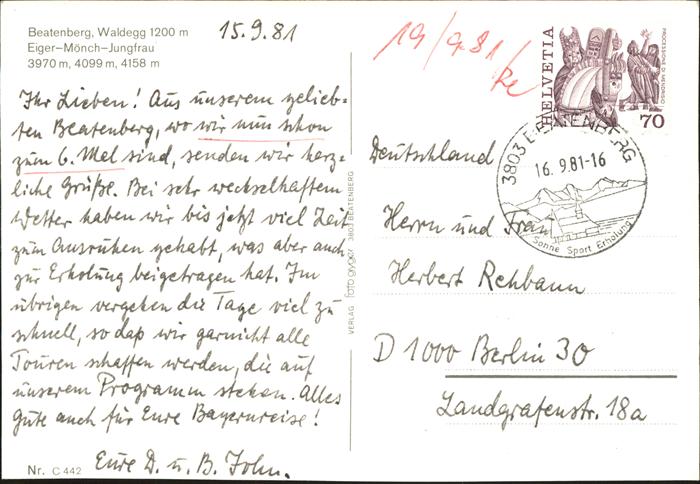 Beatenberg, Waldegg 1200 m
Eiger–Mönch–Jungfrau
3970 m, 4099 m, 4158 m
15.9.81
Ihr Lieben! Aus unserem gelieb-
ten Beatenberg, wo wir nun schon
zum 6. Mal sind, senden wir herz-
liche Grüße. Bei sehr wechselhaftem
Wetter haben wir bis jetzt viel Zeit
zum Ausruhen gehabt, was aber auch
zur Erholung beigetragen hat. Im
übrigen vergehen die Tage viel zu
schnell, so daß wir garnicht alle
Touren schaffen werden, die auf
unserem Programm stehen. Alles
Gute auch für Eure Bayernreise!
Eure D. u. B. John.
Nr. C 442
VERLAG 3803 BEATENBERG
19/9.81/
HELVETIA
PROCESSIONE DI MENDRISIO
70
3803 BEATENBERG
16.9.81-16
Sonne Sport Erholung
Deutschland
Herrn und Frau
Herbert Rehbann
D 1000 Berlin 30
Landgrafenstr. 18a